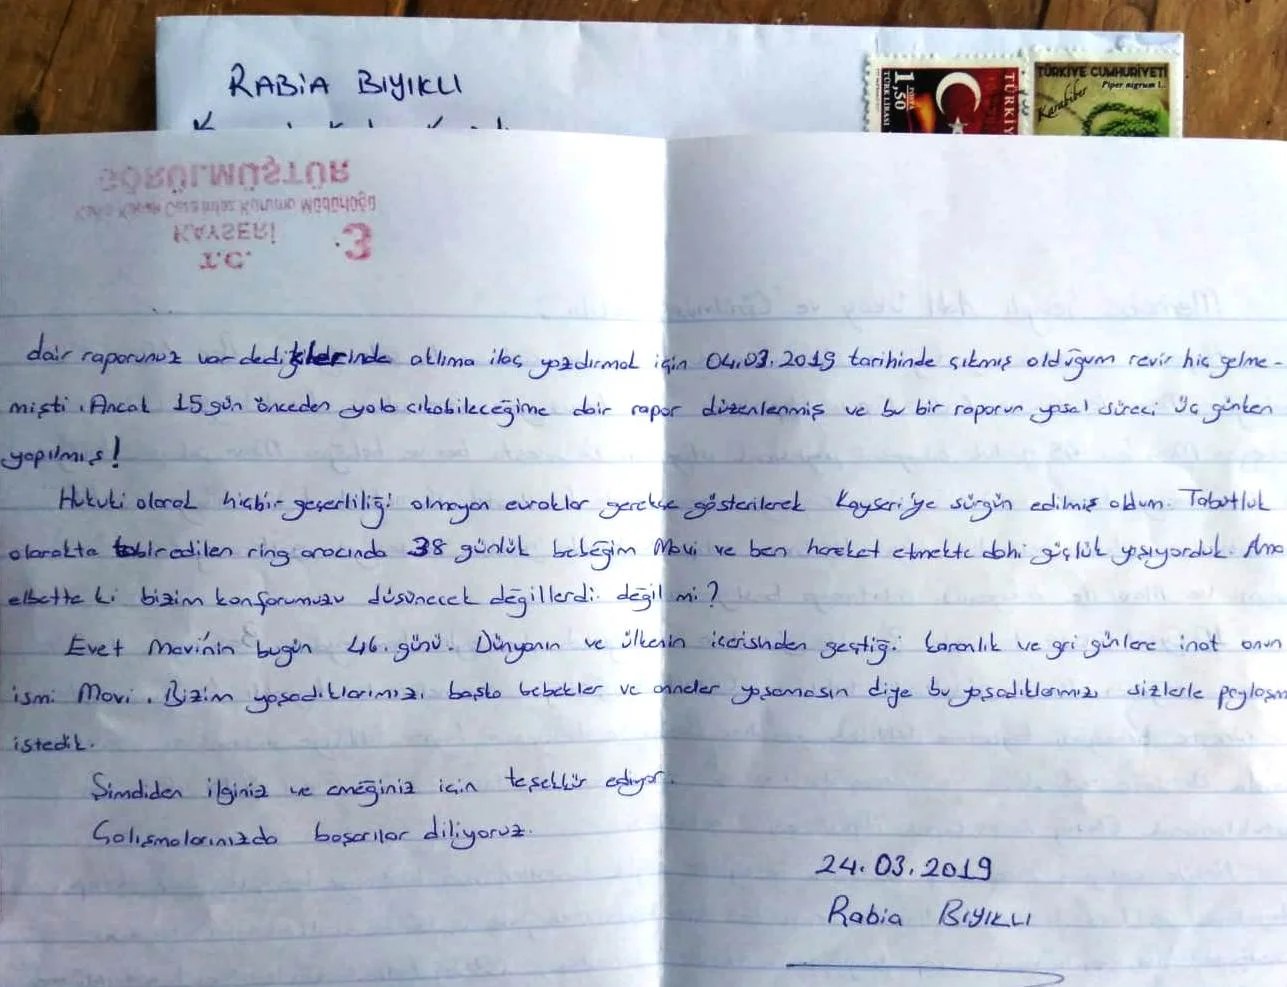 RABİA BIYIKLI
1,50
POSTA
TÜRK LİRASI
TÜRKİYE CUMHURİYETİ
Piper nigrum L.
Karabiber
GÖRÜLMÜŞTÜR
Kurumu Müdürlüğü
KAYSERİ
T.C.
3
dair raporunuz var dediklerinde aklıma ilaç yazdırmak için 04.03.2019 tarihinde çıkmış olduğum revir hiç gelme-
mişti. Ancak 15 gün önceden yola çıkabileceğime dair rapor düzenlenmiş ve bu bir raporun yasal süreci üç günken
yapılmış!
Hukuki olarak hiçbir geçerliliği olmayan evraklar gerekçe gösterilerek Kayseri'ye sürgün edilmiş oldum. Tabutluk
olarakta tabir edilen ring aracında 38 günlük bebeğim Mavi ve ben hareket etmekte dahi güçlük yaşıyorduk. Ama
elbette ki bizim konforumuzu düşünecek değillerdi değil mi?
Evet Mavi'nin bugün 46. günü. Dünyanın ve ülkenin içerisinden geçtiği karanlık ve gri günlere inat onun
ismi Mavi. Bizim yaşadıklarımızı başka bebekler ve anneler yaşamasın diye bu yaşadıklarımızı sizlerle paylaşm
istedik.
Şimdiden ilginiz ve emeğiniz için teşekkür ediyor.
Çalışmalarınızda başarılar diliyoruz.
24.03.2019
Rabia BIYIKLI